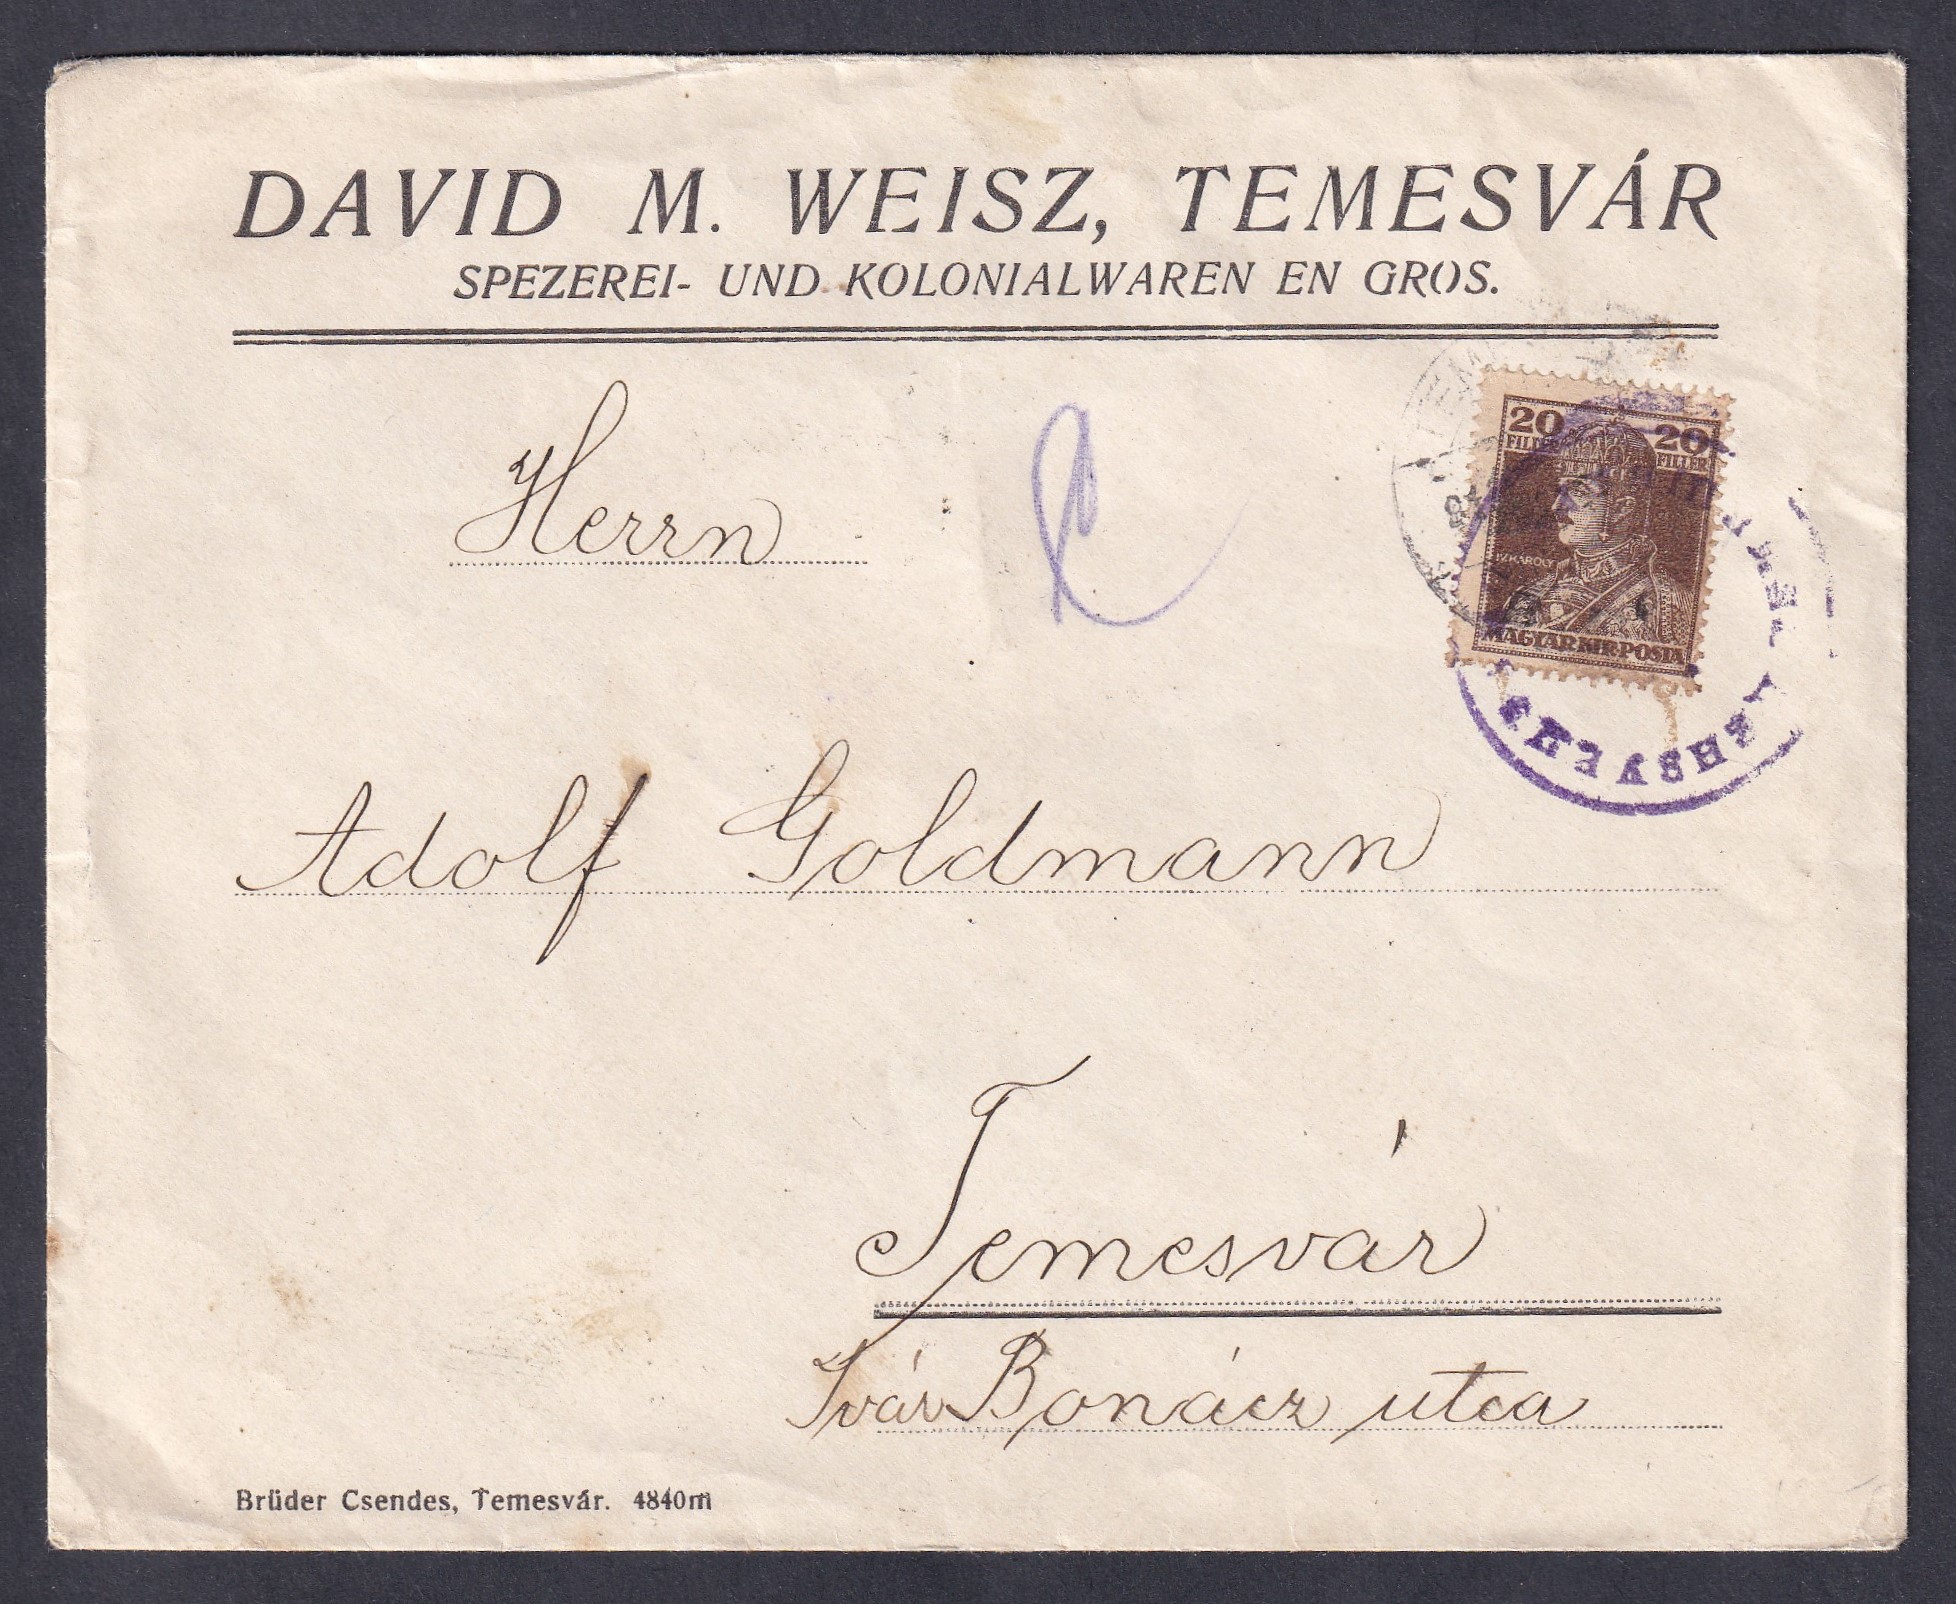 DAVID M. WEISZ, TEMESVÁR
SPEZEREI- UND KOLONIALWAREN EN GROS.
Herrn
20 20
FILLÉR FILLÉR
IV. KÁROLY
MAGYAR KIR. POSTA
Adolf Goldmann
Temesvár
Ivár Bonácz utca
Brüder Csendes, Temesvár. 4840m